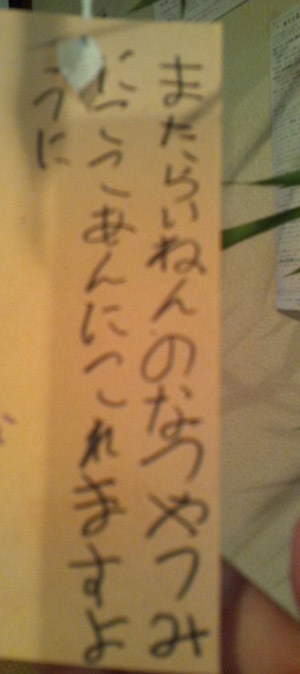 またらいねんのなつやつみ
にここあんにこれますよ
うに